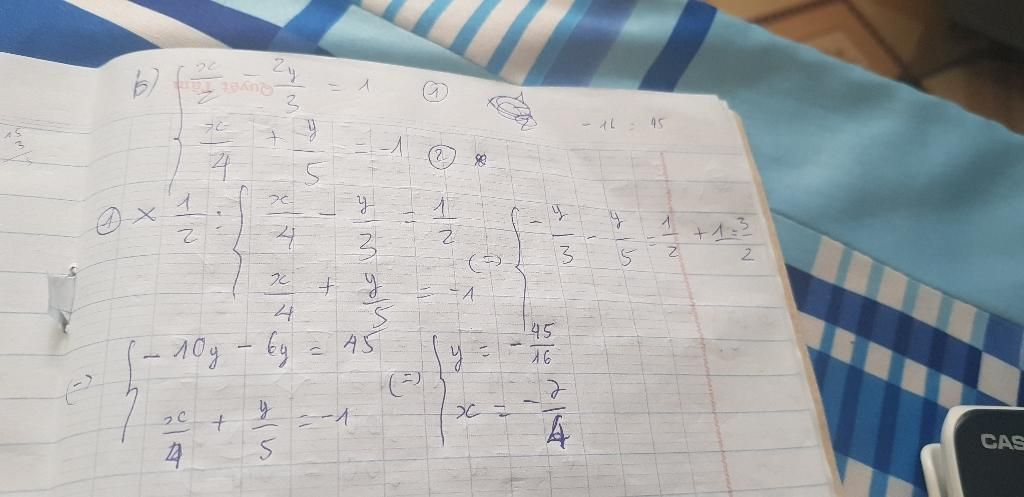 b) { x/2 - 2y/3 = 1 ①
x/4 + y/5 = -1 ②
- 16 = 45
15
3
① × 1/2 : { x/4 - y/3 = 1/2
x/4 + y/5 = -1
(=) { - y/3 - y/5 = 1/2 + 1 = 3/2
(=) { - 10y - 6y = 45
x/4 + y/5 = -1
(=) { y = - 45/16
x = - 7/4
Quyết Tâm
CAS